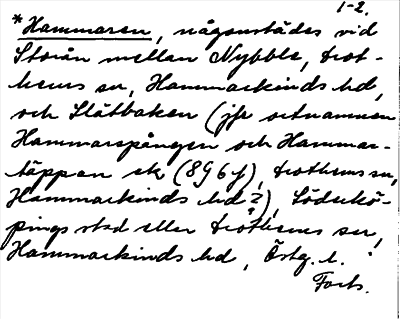 1-2.
*Hammaren, någonstädes vid
Storån mellan Nybble, Drot-
hems sn, Hammarkinds hd,
och Slätbaken (jfr ortnamnen
Hammarspången och Hammar-
täppan etc (896 f), Drothems sn,
Hammarkinds hd ?), Söderkö-
pings stad eller Drothems sn,
Hammarkinds hd, Östg. l.
Forts.